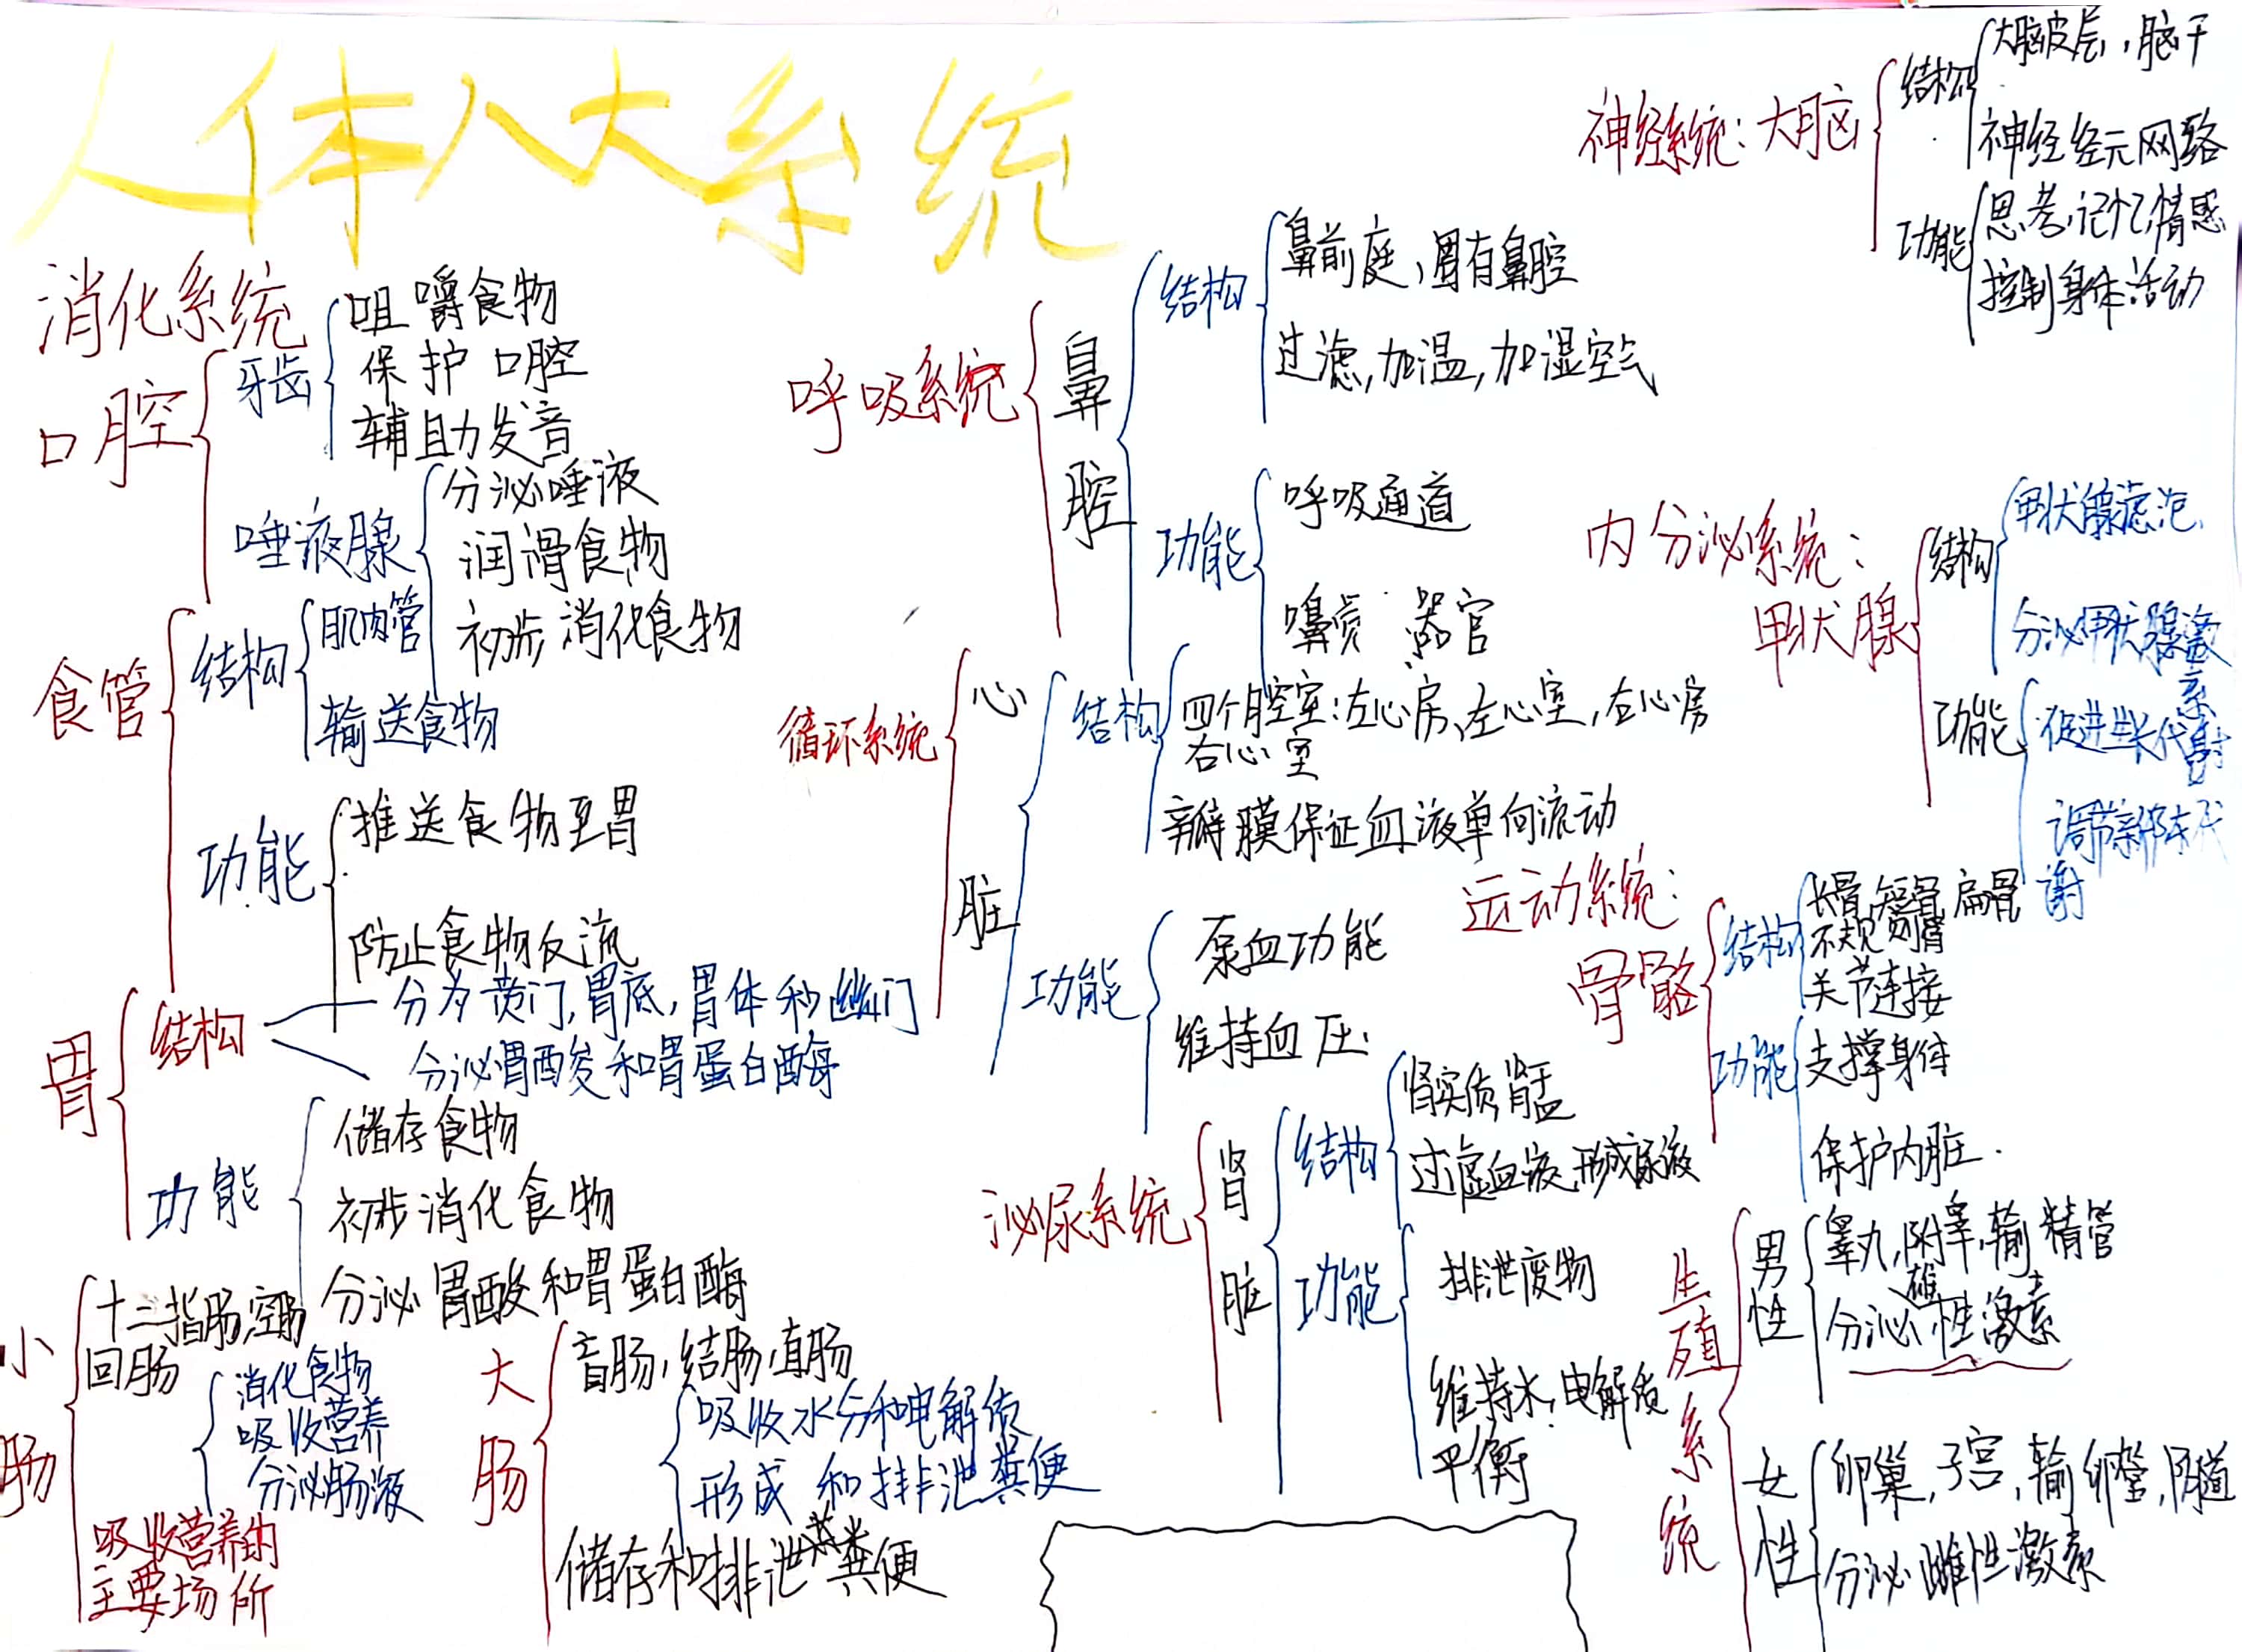 人体八大系统
消化系统
口腔
牙齿
咀嚼食物
保护口腔
辅助发音
唾液腺
分泌唾液
润滑食物
初步消化食物
食管
结构
肌肉管
输送食物
功能
推送食物至胃
防止食物反流
胃
结构
分为贲门,胃底,胃体和幽门
分泌胃酸和胃蛋白酶
功能
储存食物
初步消化食物
分泌胃酸和胃蛋白酶
小肠
十二指肠,空肠
回肠
消化食物
吸收营养
分泌肠液
吸收营养的
主要场所
大肠
盲肠,结肠,直肠
吸收水分和电解质
形成和排泄粪便
储存和排泄粪便
呼吸系统
鼻腔
结构
鼻前庭,固有鼻腔
过滤,加温,加湿空气
功能
呼吸通道
嗅觉器官
循环系统
心脏
结构
四个腔室:左心房,左心室,右心房
右心室
瓣膜保证血液单向流动
功能
泵血功能
维持血压
泌尿系统
肾脏
结构
肾实质,肾盂
过滤血液,形成尿液
功能
排泄废物
维持水,电解质
平衡
神经系统:大脑
结构
大脑皮层,脑干
神经经元网络
功能
思考,记忆,情感
控制身体活动
内分泌系统:
甲状腺
结构
甲状腺滤泡
分泌甲状腺激素
功能
促进生长代谢
调节新陈代谢
运动系统:
骨骼
结构
长骨,短骨,扁骨
不规则骨
关节连接
功能
支撑身体
保护内脏.
生殖系统
男性
睾丸,附睾,输精管
分泌雄性激素
女性
卵巢,子宫,输卵管,阴道
分泌雌性激素